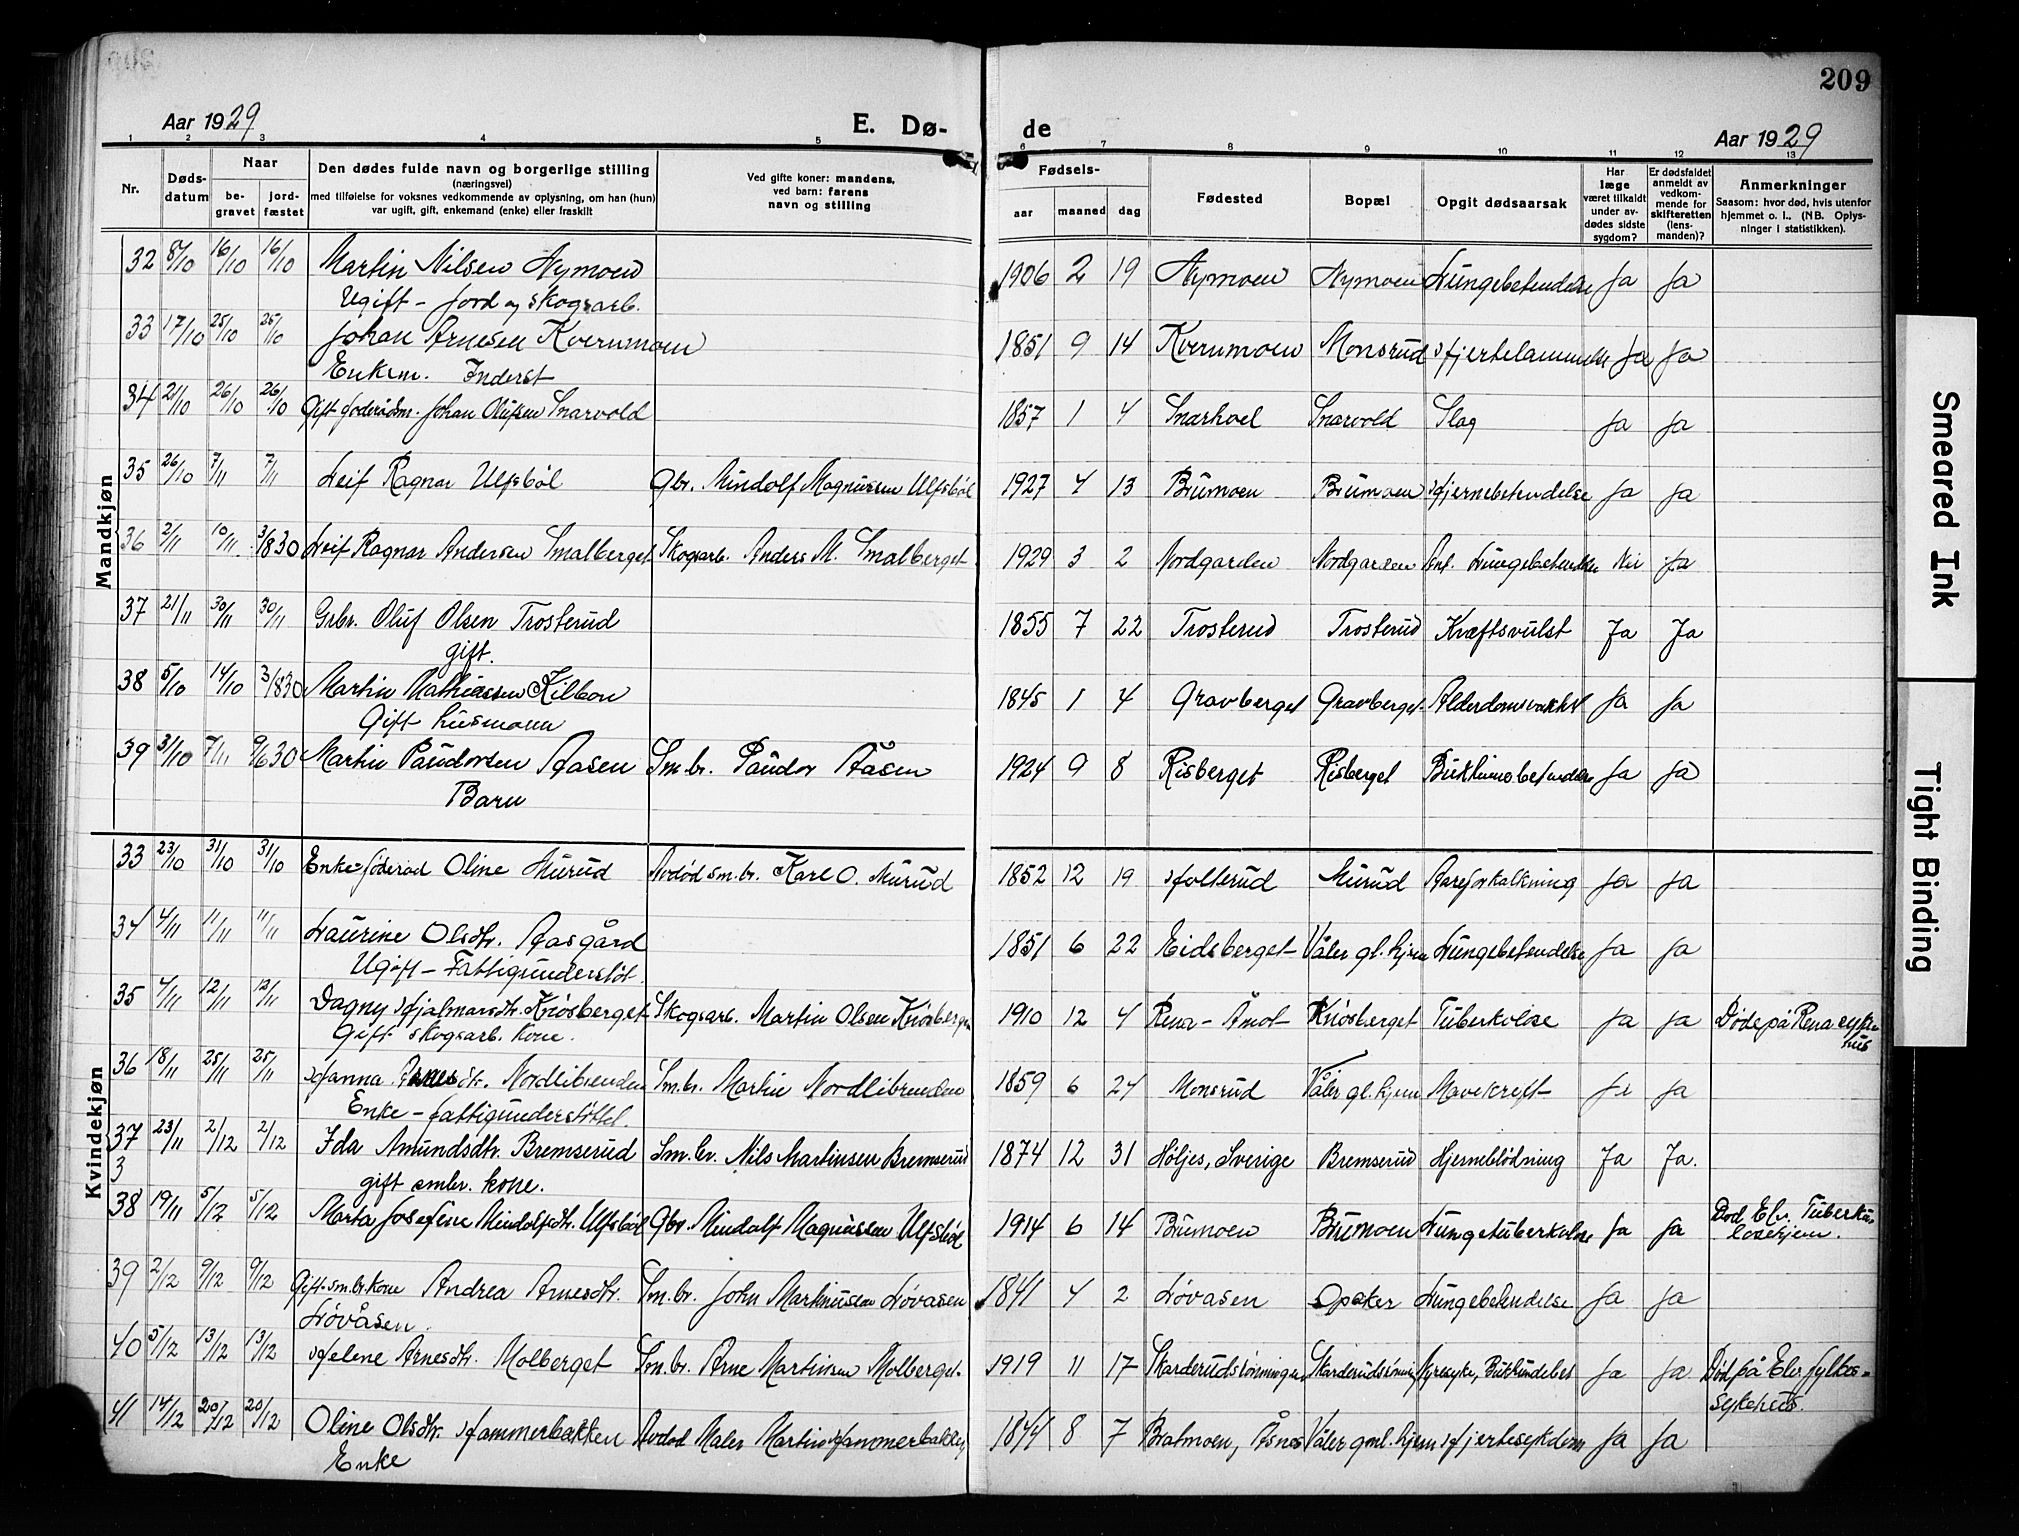 209
Aar 1929 E. Dø- de Aar 1929
1 2 3 4 5 6 7 8 9 10 11 12 13
Nr. Døds-datum Naar be-gravet jord-fæstet Den dødes fulde navn og borgerlige stilling (næringsvei) med tilføielse for voksnes vedkommende av oplysning, om han (hun) var ugift, gift, enkemand (enke) eller fraskilt Ved gifte koner: mandens, ved barn: farens navn og stilling Fødsels- aar maaned dag Fødested Bopæl Opgit dødsaarsak Har læge været tilkaldt under av-dødes sidste sygdom? Er dødsfaldet anmeldt av vedkom-mende for skifteretten (lens-manden)? Anmerkninger Saasom: hvor død, hvis utenfor hjemmet o. l., (NB. Oplys-ninger i statistikken).
Mandkjøn
32 8/10 16/10 16/10 Martin Nilsen Nymoen 1906 2 19 Nymoen Nymoen Lungebetendelse Ja Ja
Ugift - Jord og skogsarb.
33 17/10 25/10 25/10 Johan Arnesen Kvernmoen 1851 9 14 Kvernmoen Monsrud Hjertelammelse Ja Ja
Enkem. Inderst
34 21/10 26/10 26/10 Gift føderådsm. Johan Olufsen Snarvold 1857 1 4 Snarhoel Snarvold Slag Ja Ja
35 26/10 7/11 7/11 Leif Ragnar Ulfsbøl Gbr. Mindolf Magnussen Ulfsbøl 1927 4 13 Brumoen Brumoen Hjernebetendelse Ja Ja
36 2/11 10/11 3/8 30 Leif Ragnar Andersen Smalberget Skogsarb. Anders M. Smalberget 1929 3 2 Nordgarden Nordgarden Ant. Lungebetendelse Nei Ja
37 21/11 30/11 30/11 Grbr. Oluf Olsen Trosterud 1855 7 22 Trosterud Trosterud Kræftsvulst Ja Ja
gift.
38 5/10 14/10 3/8 30 Martin Mathiassen Kilbon 1845 1 4 Gravberget Gravberget Alderdomsvakhet Ja Ja
Gift husmann
39 31/10 7/11 9/6 30 Martin Paudorsen Aasen Sm.br. Paudor Åasen 1924 9 8 Risberget Risberget Bukhinnebetendelse Ja Ja
Barn
Kvindekjøn
33 23/10 31/10 31/10 Enke føderåd Oline Murud Avdød sm.br. Karl O. Murud 1852 12 19 Holterud Murud Aareforkalkning Ja Ja
34 4/11 11/11 11/11 Laurine Olsdtr. Aasgård 1851 6 22 Eidsberget Våler gl.hjem Lungebetendelse Ja Ja
Ugift - Fattigunderstøt.
35 4/11 12/11 12/11 Dagny Hjalmarsdtr. Knøsberget Skogsarb. Martin Olsen Knøsberget 1910 12 4 Rena - Åmot Knøsberget Tuberkulose Ja Ja Døde på Rena syke
Gift skogsarb. kone. hus
36 18/11 25/11 25/11 Hanna Arnesdtr. Nordlibrenden Sm.br. Martin Nordlibrenden 1859 6 24 Monsrud Våler gl.hjem Mavekreft Ja Ja
Enke - fattigunderstøttet.
37 23/11 2/12 2/12 Ida Amundsdtr. Bremserud Sm.br. Nils Martinsen Bremserud 1874 12 31 Höljes, Sverige Bremserud Hjerneblödning Ja Ja.
3 gift smbr. kone.
38 19/11 5/12 5/12 Marta Josefine Mindolfsdtr. Ulfsbøl Gbr. Mindolf Magnussen Ulfsbøl 1914 6 14 Brumoen Brumoen Lungetuberkulose Ja Ja Død Elv. Tuberku-
losehjem.
39 2/12 9/12 9/12 Gift sm.br.kone Andrea Arnesdtr. Sm.br. John Martinussen Løvåsen 1841 4 2 Løvåsen Opaker Lungebetendelse Ja Ja
Løvåsen.
40 5/12 13/12 13/12 Helene Arnesdtr. Molberget Sm.br. Arne Martinsen Molberget 1919 11 17 Skarderudslønningen Skarderudslønning Nyresyke, Bukhindebet Ja Ja Død på Elv. fylkes-
sykehus.
41 14/12 20/12 20/12 Oline Olsdtr. Hammerbakken Avdød Maler Martin Hammerbakken 1844 8 7 Bratmoen, Åsnes Våler gml. hjem Hjertesykdom Ja Ja
Enke
Smeared Ink
Tight Binding